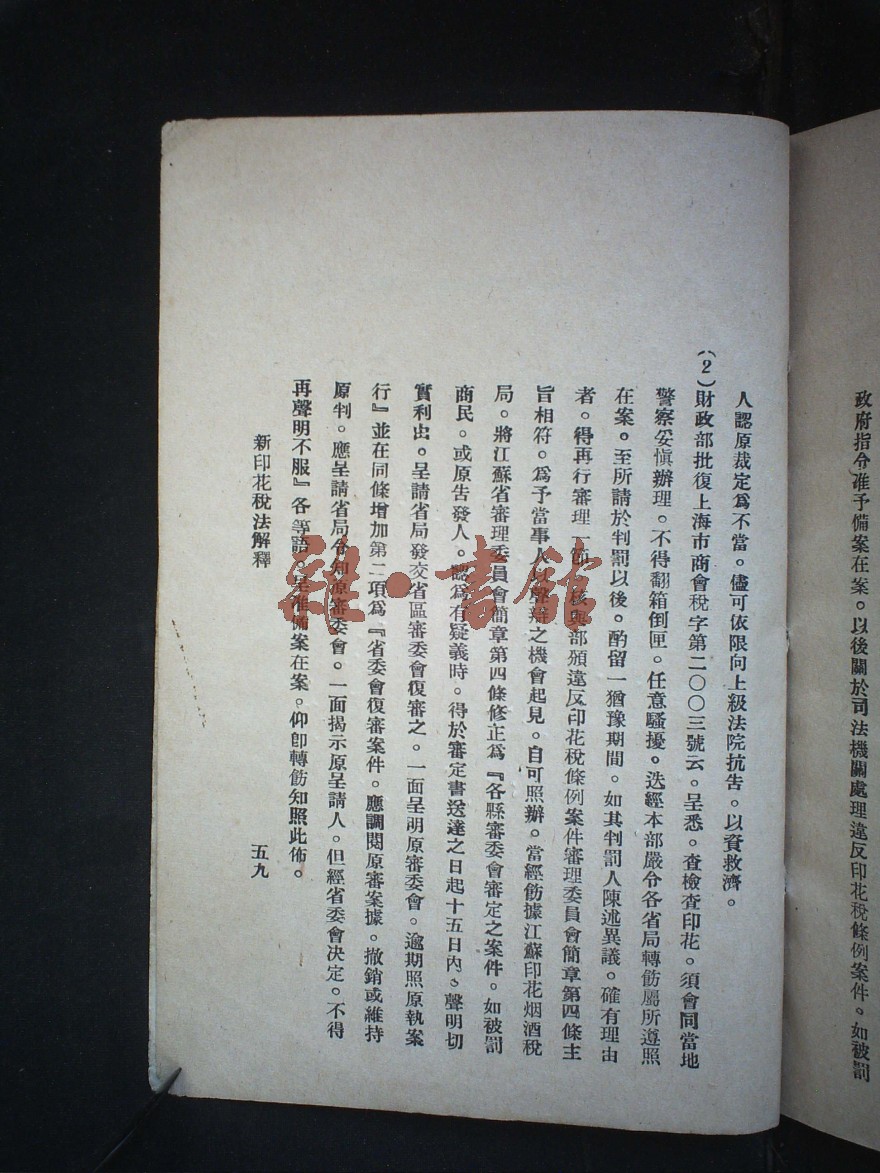 政府指令准予備案在案。以後關於司法機關處理違反印花稅條例案件。如被罰
人認原裁定爲不當。儘可依限向上級法院抗告。以資救濟。
(2)財政部批復上海市商會稅字第二〇〇三號云。呈悉。查檢查印花。須會同當地
警察妥愼辦理。不得翻箱倒匣。任意騷擾。迭經本部嚴令各省局轉飭屬所遵照
在案。至所請於判罰以後。酌留一猶豫期間。如其判罰人陳述異議。確有理由
者。得再行審理一節。核與部頒違反印花稅條例案件審理委員會簡章第四條主
旨相符。爲予當事人以聲辯之機會起見。自可照辦。當經飭據江蘇印花烟酒稅
局。將江蘇省審理委員會簡章第四條修正爲『各縣審委會審定之案件。如被罰
商民。或原告發人。認爲有疑義時。得於審定書送達之日起十五日內、聲明切
實利出。呈請省局發交省區審委會復審之。一面呈明原審委會。逾期照原執案
行』並在同條增加第二項爲『省委會復審案件。應調閱原審案據。撤銷或維持
原判。應呈請省局令知原審委會。一面揭示原呈請人。但經省委會決定。不得
再聲明不服』各等語。呈准備案在案。仰卽轉飭知照此佈。
新印花稅法解釋
五九
雜·書館